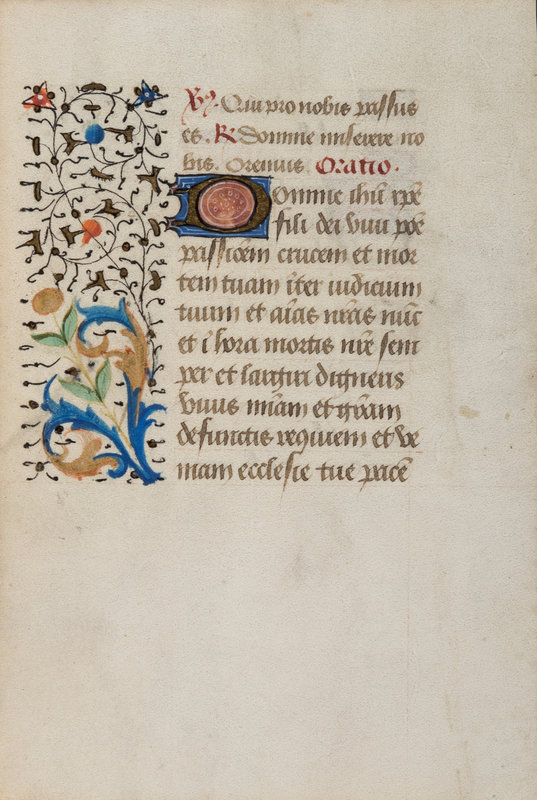 V̶. Qui pro nobis passus
es. R Domine miserere no
bis. Oremus. Oratio.
Domine ihū xpē
fili dei vivi pōe
passiōem crucem et mor
tem tuam īter iudicium
tuum et aīas nr̄as nūc
et ī hora mortis nr̄e sem
per et largiri digneris
vivis mīam et grām
defunctis requiem et ve
niam ecclesie tue pacē